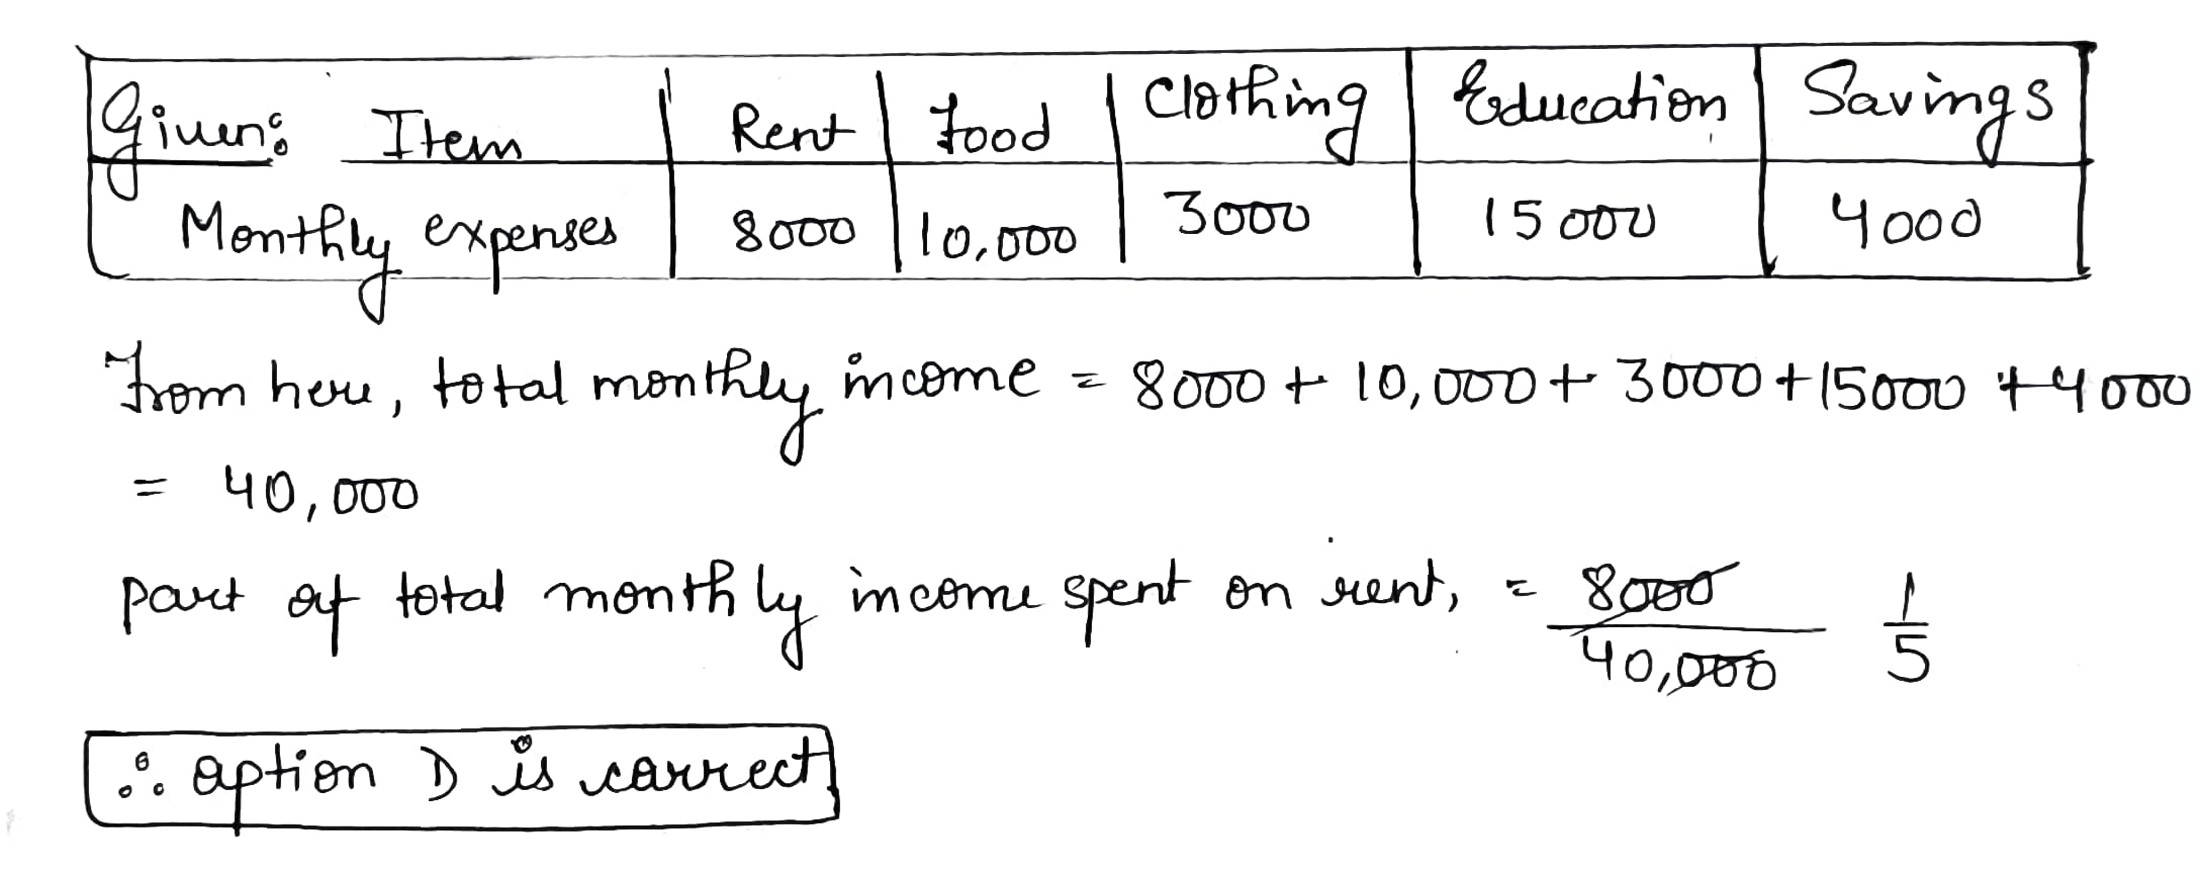 Given: Item | Rent | Food | Clothing | Education | Savings
Monthly expenses | 8000 | 10,000 | 3000 | 15000 | 4000
From here, total monthly income = 8000 + 10,000 + 3000 + 15000 + 4000
= 40,000
part of total monthly income spent on rent, = 8000/40,000 1/5
∴ option D is correct